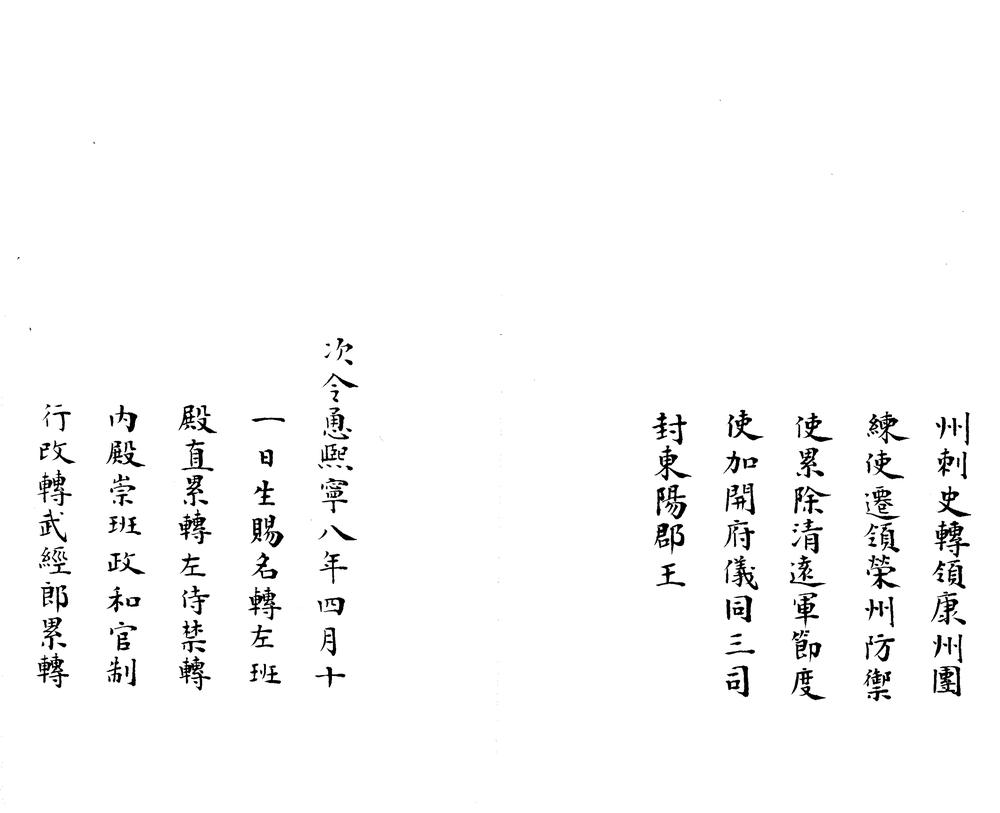 州刺史轉領康州團
練使遷領榮州防禦
使累除清遠軍節度
使加開府儀同三司
封東陽郡王
次令恿熙寧八年四月十
一日生賜名轉左班
殿直累轉左侍禁轉
内殿崇班政和官制
行改轉武經郎累轉